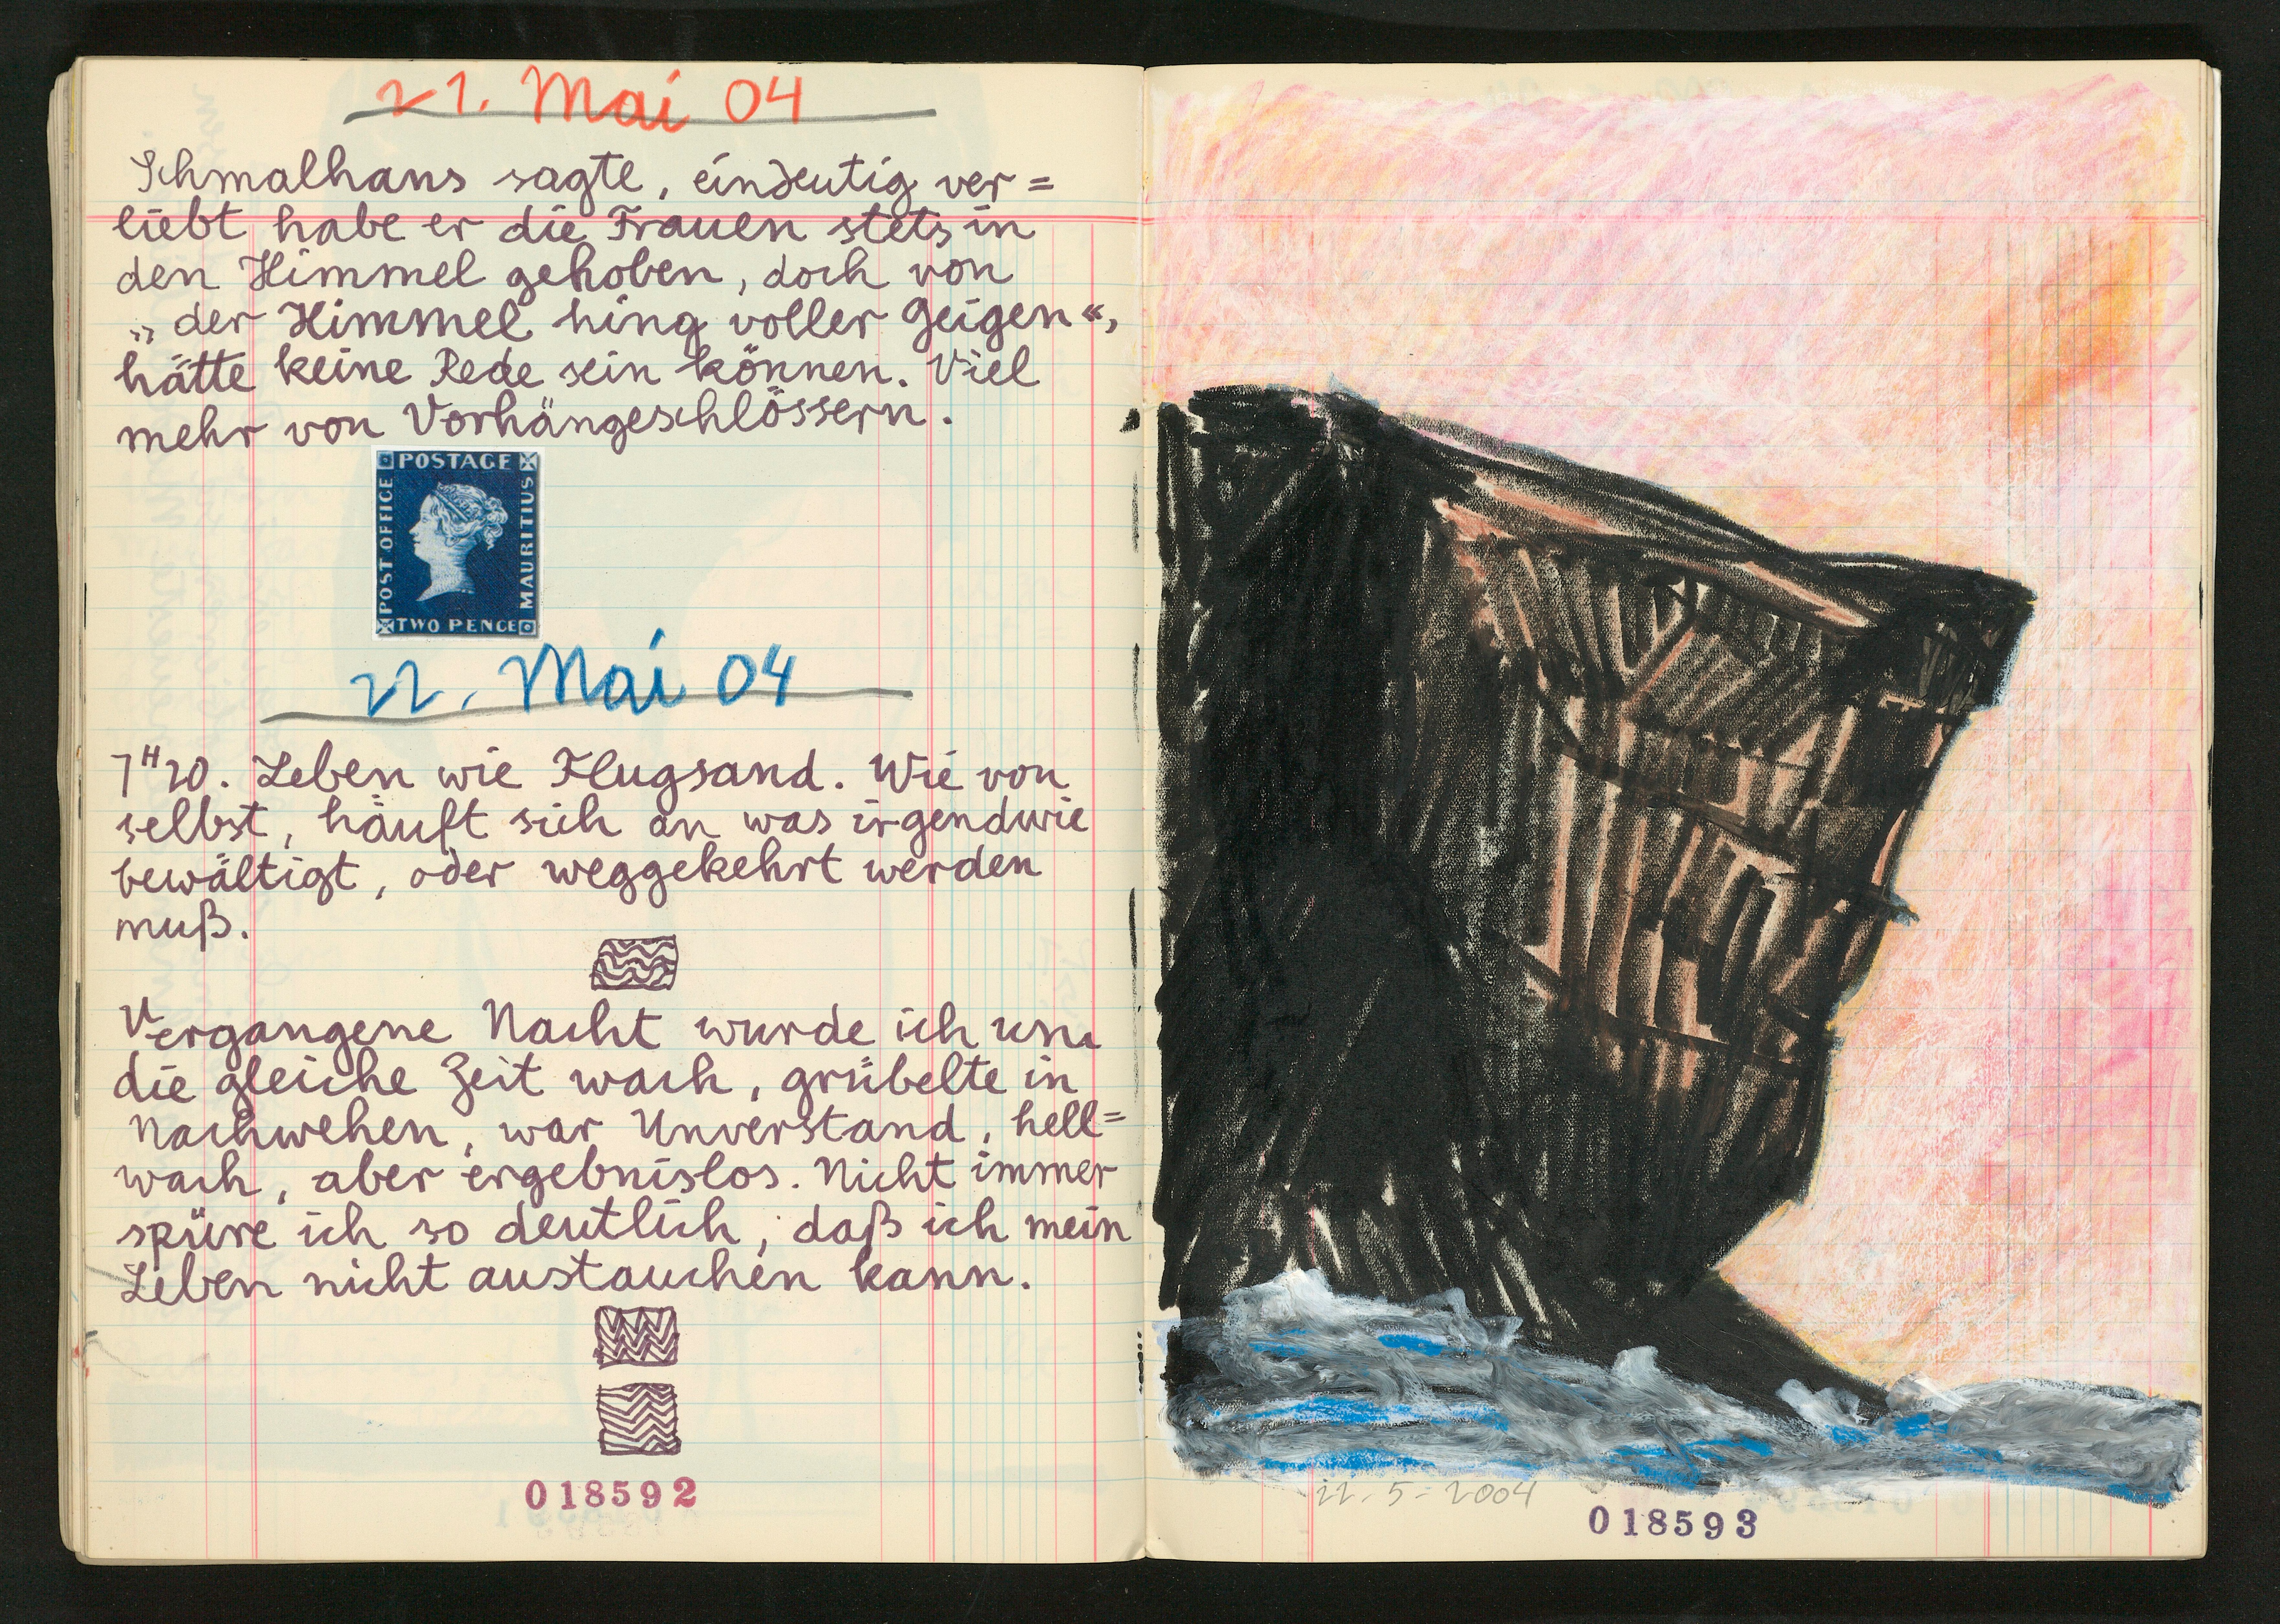 21. Mai 04
Schmalhans sagte, eindeutig ver=
liebt habe er die Frauen stets in
den Himmel gehoben, doch von
„der Himmel hing voller Geigen“,
hätte keine Rede sein können. Viel
mehr von Vorhängeschlössern.
POSTAGE
POST OFFICE
MAURITIUS
TWO PENCE
22. Mai 04
7H20. Leben wie Flugsand. Wie von
selbst, häuft sich an was irgendwie
bewältigt, oder weggekehrt werden
muß.
Vergangene Nacht wurde ich um
die gleiche Zeit wach, grübelte in
Nachwehen, war Unverstand, hell=
wach, aber ergebnislos. Nicht immer
spüre ich so deutlich, daß ich mein
Leben nicht austauchen kann.
018592
22.5-2004
018593